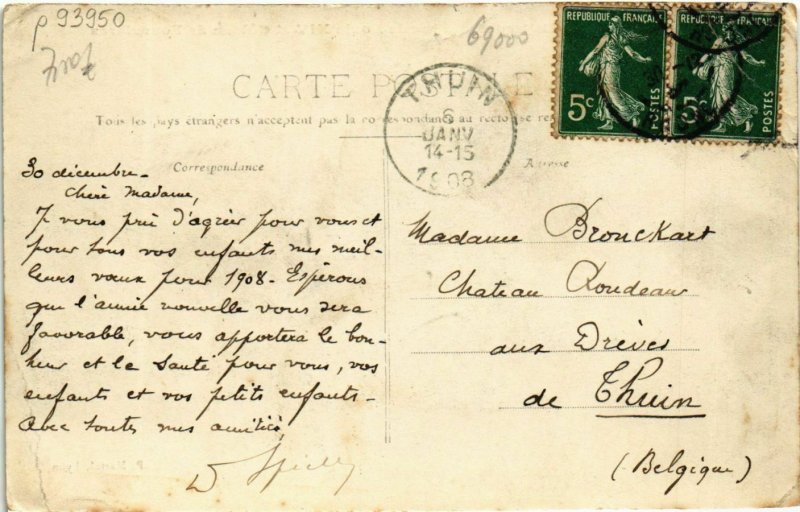 p 93950
69000
REPUBLIQUE FRANÇAISE
5c
POSTES
REPUBLIQUE FRANÇAISE
5c
POSTES
CARTE POSTALE
THUIN
6
JANV
14-15
1908
Tous les pays étrangers n'acceptent pas la correspondance au recto
Correspondance
Adresse
30 décembre -
Chère Madame,
Je vous prie d'agréer pour vous et
pour tous vos enfants mes meil-
leurs vœux pour 1908 - Espérons
que l'année nouvelle vous sera
favorable, vous apportera le bon-
heur et la santé pour vous, vos
enfants et vos petits enfants -
Avec toutes mes amitiés,
Madame Bronckart
Chateau Rondeau
aux Drèves
de Thuin
(Belgique)